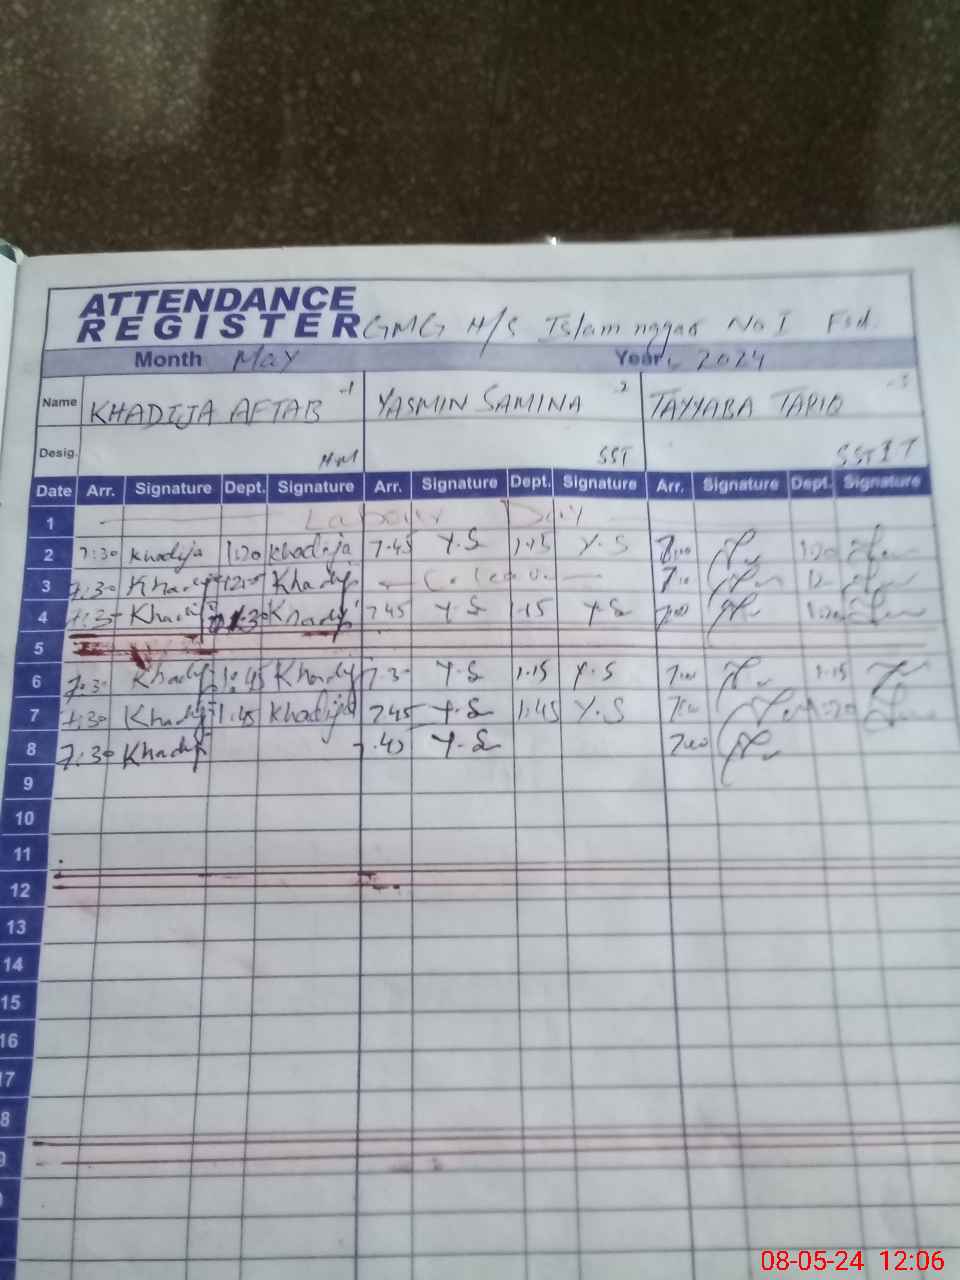 ATTENDANCE
REGISTER GMG H/S Islam nggar No I Fsd.
Month May Year 2024
Name KHADIJA AFTAB -1 YASMIN SAMINA -2 TAYYABA TARIQ -3
Desig. HM SST SST IT
Date Arr. Signature Dept. Signature Arr. Signature Dept. Signature Arr. Signature Dept. Signature
1 Labour Day
2 7:30 Khadija 1:20 Khadija 7.45 Y.S 1.15 Y.S 7:00 1:20
3 7:30 Khadij Khadij C. leave 12
4 7:30 Khadij Khadij 7.45 Y.S 1.15 Y.S 7:00
5
6 7:30 Khadij 1:45 Khadij 7.30 Y.S 1.15 Y.S 7:00 1:15
7 7:30 Khadij 1:45 Khadija 7.45 Y.S 1.45 Y.S 7:00
8 7:30 Khadij 7.45 Y.S 7:00
9
10
11
12
13
14
15
16
17
8
9
08-05-24 12:06